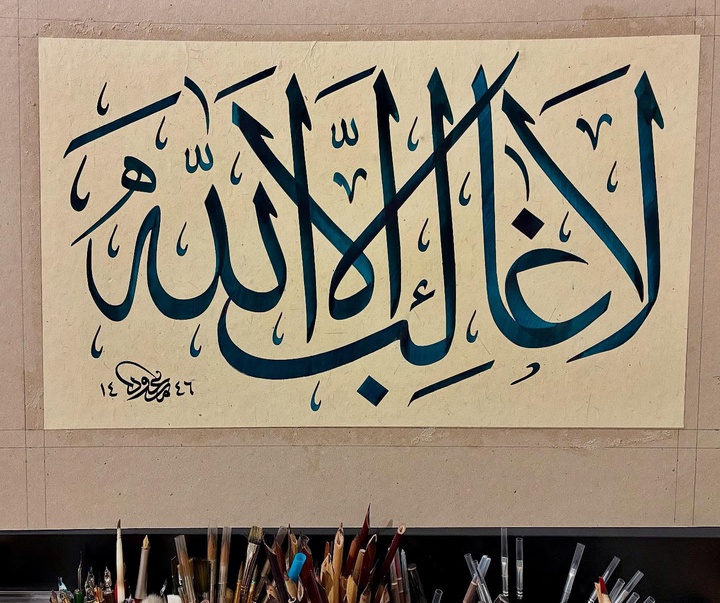 لَا غَالِبَ إِلَّا اللّٰه
١٤٤٦